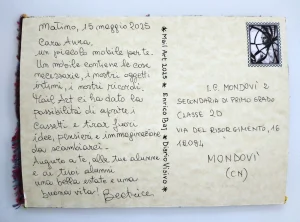 Matino, 15 maggio 2025
Cara Aura,
un piccolo mobile per te.
Un mobile contiene le cose
necessarie, i nostri oggetti
intimi, i nostri ricordi.
Mail Art ci ha dato la
possibilità di aprire i
cassetti e tirar fuori
idee, pensieri e immaginazione
da scambiarci.
Auguro a te, alle tue alunne
e ai tuoi alunni
una bella estate e una
buona vita! Beatrice
* Mail Art 2025 * Enrico Baj * Dario Visivo
I.C. MONDOVÌ 2
SECONDARIA DI PRIMO GRADO
CLASSE 2D
VIA DEL RISORGIMENTO, 16
12084
MONDOVÌ
(CN)